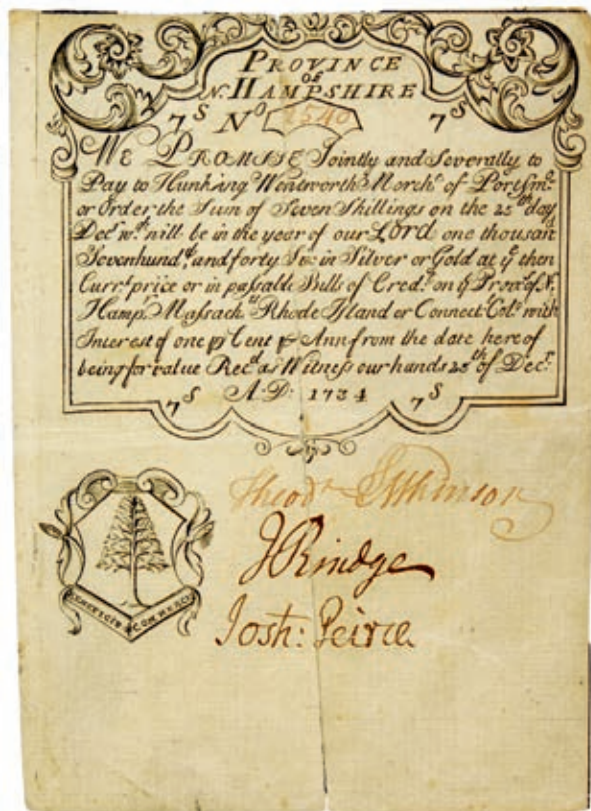 PROVINCE
OF
N. HAMPSHIRE
7S No 2540 7S
WE PROMISE Jointly and Severally to
Pay to Hunking Wentworth Mercht of Portsmo
or Order the Sum of Seven Shillings on the 25th day
Decr wch will be in the year of our LORD one thousan
Sevenhundd and forty Six in Silver or Gold at ye then
Currt price or in passable Bills of Credt on ye Prove of N.
Hampr Massachts Rhode Island or Connect: Colo with
Interest of one p Cent p Ann from the date hereof
being for value Recd as Witness our hands 25th of Decr
7S A:D: 1734 7S
Theodr Atkinson
J Rindge
Josh: Peirce
BENEFICIO COMMERCII